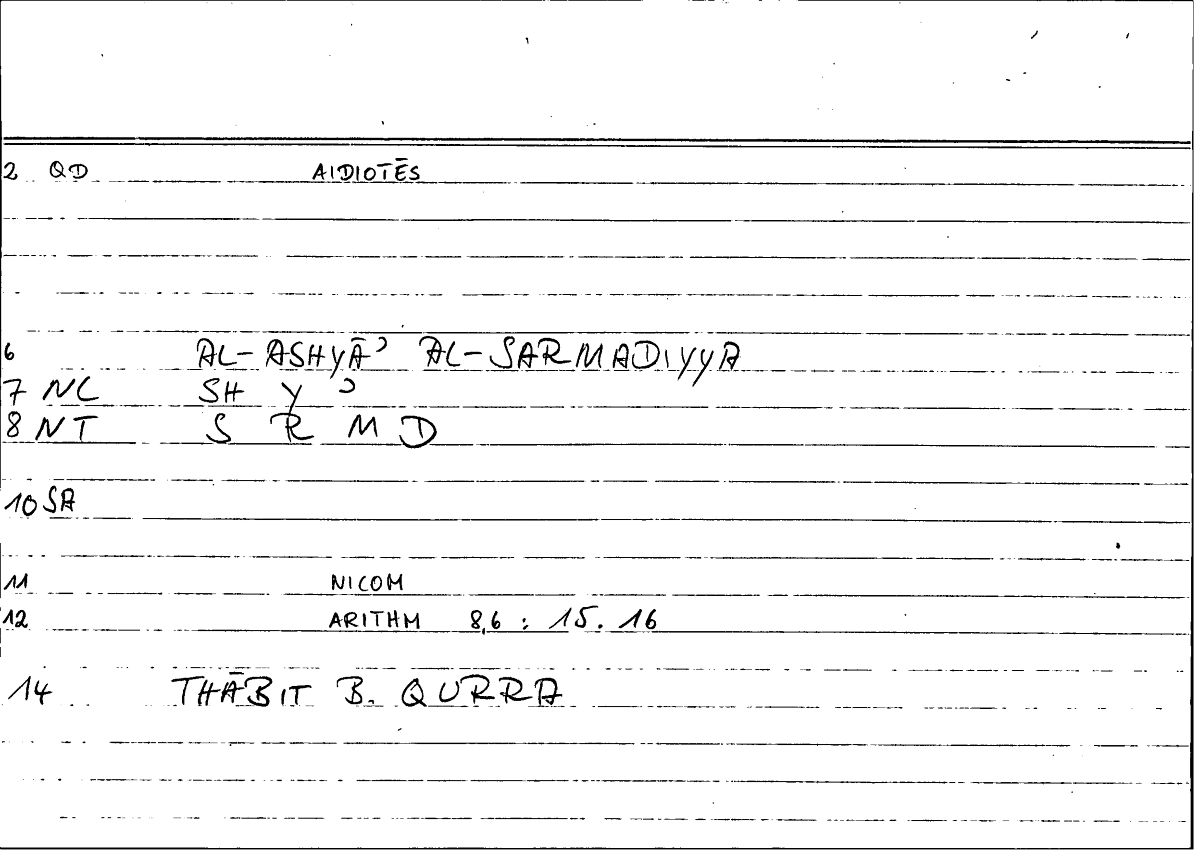 2 QD AIDIOTĒS
6 AL-ASHYĀʾ AL-SARMADIYYA
7 NC SH Y ʾ
8 NT S R M D
10 SA
11 NICOM
12 ARITHM 8,6 : 15. 16
14 THĀBIT B. QURRA